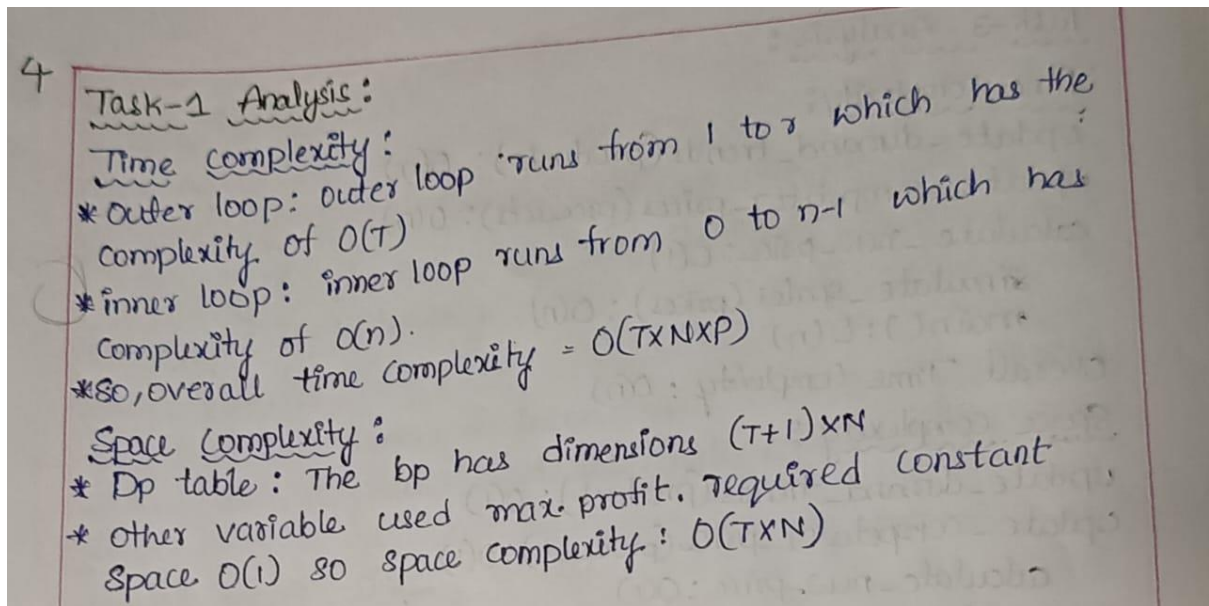 4
Task-1 Analysis:
Time complexity:
* outer loop: outer loop runs from 1 to r which has the
complexity of O(T)
* inner loop: inner loop runs from 0 to n-1 which has
complexity of o(n).
* so, overall time complexity = O(TXNXP)
Space Complexity:
* Dp table: The bp has dimensions (T+1)XN
* other variable used max. profit. required constant
Space O(1) so space complexity: O(TXN)